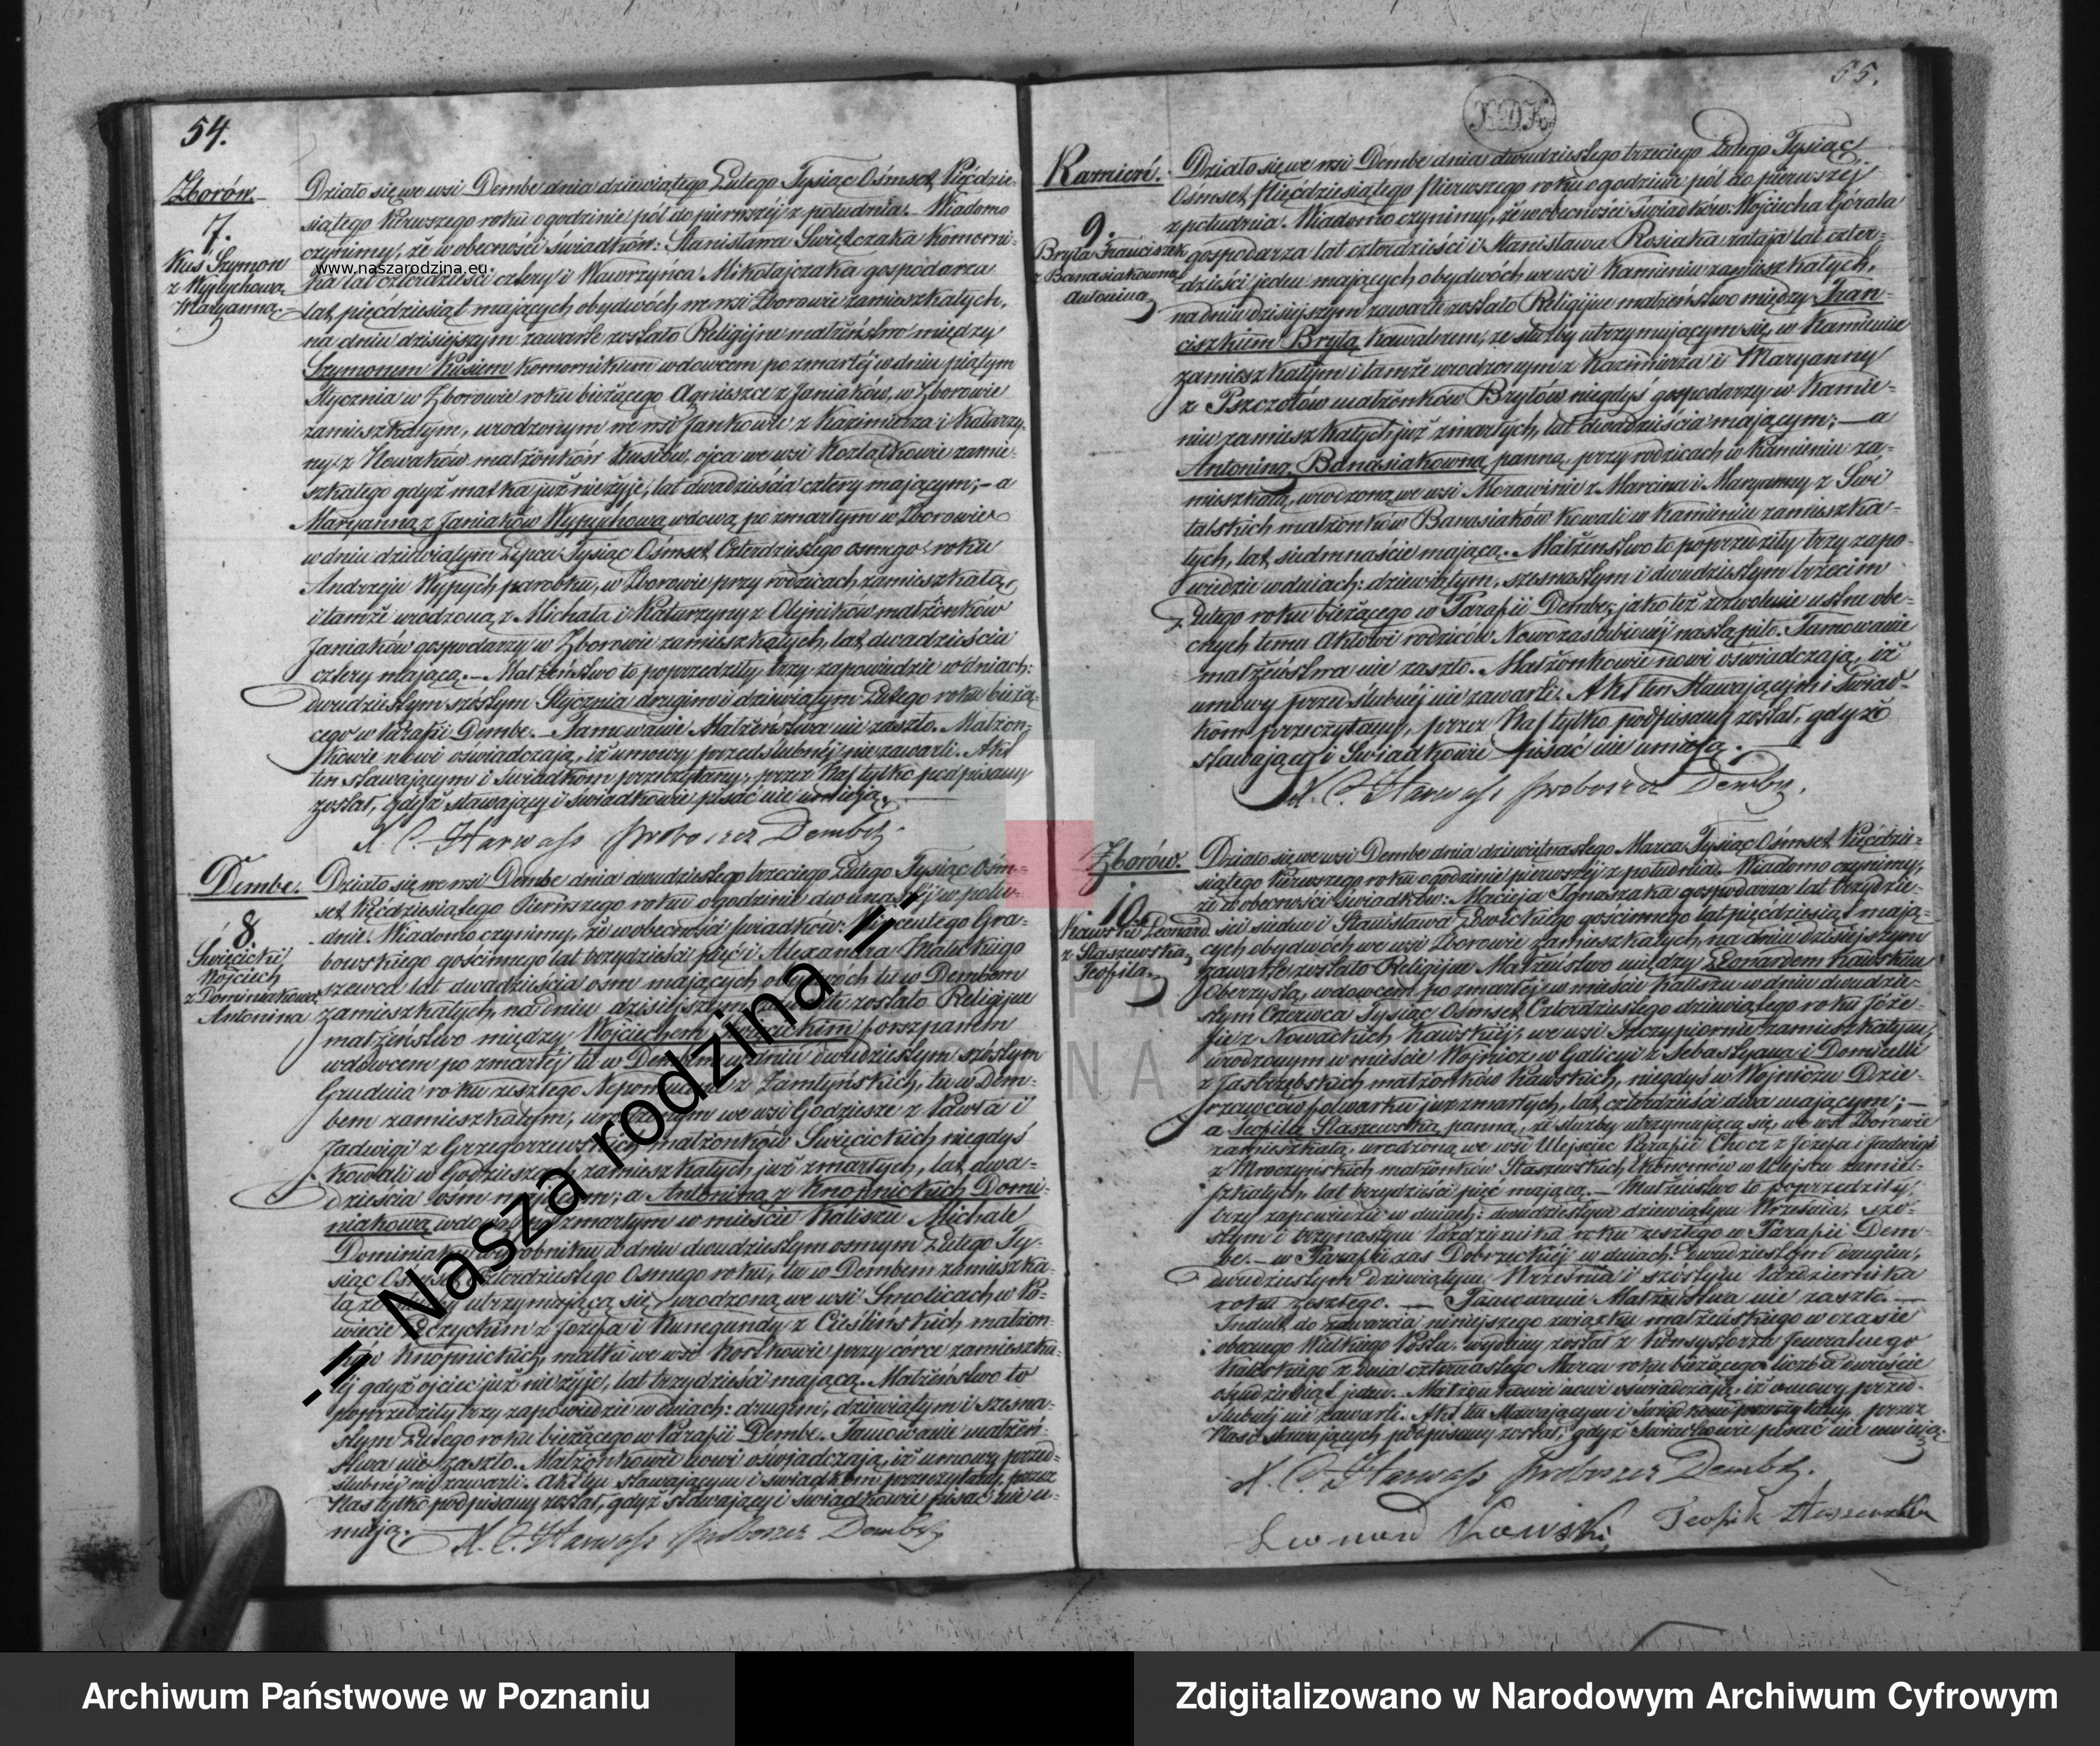 54.
Zborów.
7.
Kuś Szymon
z Wypychową
Maryanną.
Działo się we wsi Dembe dnia dziewiątego Lutego Tysiąc Ośmset Pięćdzie-
siątego Pierwszego roku o godzinie pół do pierwszéj z południa. Wiadomo
czynimy, że w obecności świadków: Stanisława Świętczaka Komorni-
ka lat czterdzieści cztery i Wawrzyńca Mikołajczaka gospodarza
lat pięćdziesiąt mających obydwóch we wsi Zborowie zamieszkałych,
na dniu dzisiejszym zawarte zostało Religijne małżeństwo między
Szymonem Kusiem Komornikiem wdowcem po zmarłéj w dniu piątym
Stycznia w Zborowie roku bieżącego Agnieszce z Janiaków, w Zborowie
zamieszkałym, urodzonym we wsi Jankowie z Kazimierza i Katarzy-
ny z Nowaków małżonków Kusiów, ojca we wsi Koźlątkowie zamie-
szkałego gdyż matka już nie żyje, lat dwadzieścia cztery mającym; – a
Maryanną z Janiaków Wypychową wdową po zmarłym w Zborowie
w dniu dziewiątym Lipca Tysiąc Ośmset Czterdziestego osmego roku
Andrzeju Wypych parobku, w Zborowie przy rodzicach zamieszkałą
i tamże urodzoną z Michała i Katarzyny z Olejników małżonków
Janiaków gospodarzy w Zborowie zamieszkałych, lat dwadzieścia
cztery mającą. – Małżeństwo to poprzedziły trzy zapowiedzie w dniach:
dwudziestym szóstym Stycznia drugim i dziewiątym Lutego roku bieżą-
cego w Parafii Dembe. – Tamowanie Małżeństwa nie zaszło. Małżon-
kowie nowi oświadczają, iż umowy przedślubnéj nie zawarli. Akt
ten stawającym i świadkom przeczytany, przez Nas tylko podpisany
został, gdyż stawający i świadkowie pisać nie umieją.
X. C. Harwas proboszcz Dembsk.
Dembe.
8.
Święcicki
Wojciech
z Dominiakową
Antoniną
Działo się we wsi Dembe dnia dwudziestego trzeciego Lutego Tysiąc Ośm-
set Pięćdziesiątego Pierwszego roku o godzinie dwunastéj w połu-
dnie. Wiadomo czynimy, że w obecności świadków: Wincentego Gra-
bowskiego gościnnego lat trzydzieści pięć i Alexandra Małeckiego
szewca lat dwadzieścia ośm mających obydwóch tu w Dembem
zamieszkałych, na dniu dzisiejszym zawarte zostało Religijne
małżeństwo między Wojciechem Święcickim forszpanem
wdowcem po zmarłéj tu w Dembem w dniu dwudziestym szóstym
Grudnia roku zeszłego Nepomucenie z Zamłyńskich, tu w Dem-
bem zamieszkałym, urodzonym we wsi Godziesze z Pawła i
Jadwigi z Grzegorzewskich małżonków Święcickich niegdyś
Kowali w Godzieszach zamieszkałych już zmarłych, lat dwa-
dzieścia ośm mającym; a Antoniną z Knopnickich Domi-
niakową wdową po zmarłym w mieście Kaliszu Michale
Dominiaku wyrobniku w dniu dwudziestym osmym Lutego Ty-
siąc Ośmset Czterdziestego Osmego roku, tu w Dembem zamieszka-
łą ze służby utrzymującą się, urodzoną we wsi Smolicach w Po-
wiecie Łęczyckim z Józefa i Kunegundy z Cieślińskich małżon-
ków Knopnickich, matki we wsi Kościkowie przy córce zamieszka-
łéj gdyż ojciec już nie żyje, lat trzydzieści mającą. Małżeństwo to
poprzedziły trzy zapowiedzie w dniach: drugim, dziewiątym i szesna-
stym Lutego roku bieżącego w Parafii Dembe. Tamowanie małżeń-
stwa nie zaszło. Małżonkowie nowi oświadczają, iż umowy przed-
ślubnéj nie zawarli. Akt ten stawającym i świadkom przeczytany, przez
Nas tylko podpisany został, gdyż stawający i świadkowie pisać nie u-
mieją.
X. C. Harwas proboszcz Dembsk.
55.
KDK
Kamień.
9.
Bryla Franciszek
z Banasiakowną
Antoniną
Działo się we wsi Dembe dnia dwudziestego trzeciego Lutego Tysiąc
Ośmset Pięćdziesiątego Pierwszego roku o godzinie pół do pierwszéj
z południa. Wiadomo czynimy, że w obecności świadków: Wojciecha Górala
gospodarza lat czterdzieści i Stanisława Rosiaka rataja lat czter-
dzieści jeden mających obydwóch we wsi Kamieniu zamieszkałych,
na dniu dzisiejszym zawarte zostało Religijne małżeństwo między Fran-
ciszkiem Brylą Kawalerem, ze służby utrzymującym się, w Kamieniu
zamieszkałym i tamże urodzonym z Kazimierza i Maryanny
z Pszczołów małżonków Brylów niegdyś gospodarzy w Kamie-
niu zamieszkałych już zmarłych, lat dwadzieścia mającym; – a
Antoniną Banasiakowną panną, przy rodzicach w Kamieniu za-
mieszkałą, urodzoną we wsi Morawinie z Marcina i Maryanny z Świ
talskich małżonków Banasiaków Kowali w Kamieniu zamieszka-
łych, lat siedmnaście mającą. Małżeństwo to poprzedziły trzy zapo-
wiedzie w dniach: dziewiątym, szesnastym i dwudziestym trzecim
Lutego roku bieżącego w Parafii Dembe, jako też zezwolenie ustne obe-
cnych temu Aktowi rodziców Nowozaślubionéj nastąpiło. Tamowanie
małżeństwa nie zaszło. Małżonkowie nowi oświadczają, iż
umowy przedślubnéj nie zawarli. Akt ten Stawającym i Świad-
kom przeczytany, przez Nas tylko podpisany został, gdyż
stawający i Świadkowie pisać nie umieją.
X. C. Harwas proboszcz Dembsk.
Zborów.
10.
Kawski Leonard
z Staszewską
Teofilą.
Działo się we wsi Dembe dnia dziewiętnastego Marca Tysiąc Ośmset Pięćdzie-
siątego Pierwszego roku o godzinie pierwszéj z południa. Wiadomo czynimy,
że w obecności świadków: Macieja Ignaszaka gospodarza lat trzydzie-
ści siedm i Stanisława Lwowickiego gościnnego lat pięćdziesiąt mają-
cych obydwóch we wsi Zborowie zamieszkałych, na dniu dzisiejszym
zawarte zostało Religijne Małżeństwo między Leonardem Kawskim
Oberzystą, wdowcem po zmarłéj w mieście Kaliszu w dniu dwudzie-
stym Czerwca Tysiąc Ośmset Czterdziestego dziewiątego roku Józe-
fie z Nowackich Kawskiéj, we wsi Szczypiornie zamieszkałym,
urodzonym w mieście Wojnicz w Galicyi z Sebastyana i Domicelli
z Jastrzębskich małżonków Kawskich, niegdyś w Wojniczu Dzie-
rzawców folwarku już zmarłych, lat czterdzieści dwa mającym; –
a Teofilą Staszewską panną, ze służby utrzymującą się, we wsi Zborowie
zamieszkałą, urodzoną we wsi Ulejsciec Parafii Chocz z Józefa i Jadwigi
z Mroczyńskich małżonków Staszewskich Ekonomów w Ulejscu zamie-
szkałych, lat trzydzieści pięć mającą. – Małżeństwo to poprzedziły
trzy zapowiedzie w dniach: dwudziestym dziewiątym Września, szó-
stym i trzynastym Października roku zeszłego w Parafii Dem-
be. – w Parafii zaś Dobrzeckiéj w dniach: dwudziestym drugim,
dwudziestym dziewiątym Września i szóstym Października
roku zeszłego. – Tamowanie Małżeństwa nie zaszło. –
Indult do zawarcia niniejszego związku małżeńskiego w czasie
obecnego Wielkiego Postu, wydany został z Konsystorza Jeneralnego
Kaliskiego z dnia czternastego Marca roku bieżącego liczba dwieście
ośmdziesiąt jeden. Małżonkowie nowi oświadczają, iż umowy przed-
ślubnéj nie zawarli. Akt ten Stawającym i świadkom przeczytany, przez
Nas i stawających podpisany został, gdyż świadkowie pisać nie umieją.
X. C. Harwas proboszcz Dembsk.
Leonard Kawski Teofila Staszewska
www.naszarodzina.eu
-=Nasza rodzina=-
ARCHIWUM PAŃSTWOWE
W POZNANIU
Archiwum Państwowe w Poznaniu
Zdigitalizowano w Narodowym Archiwum Cyfrowym